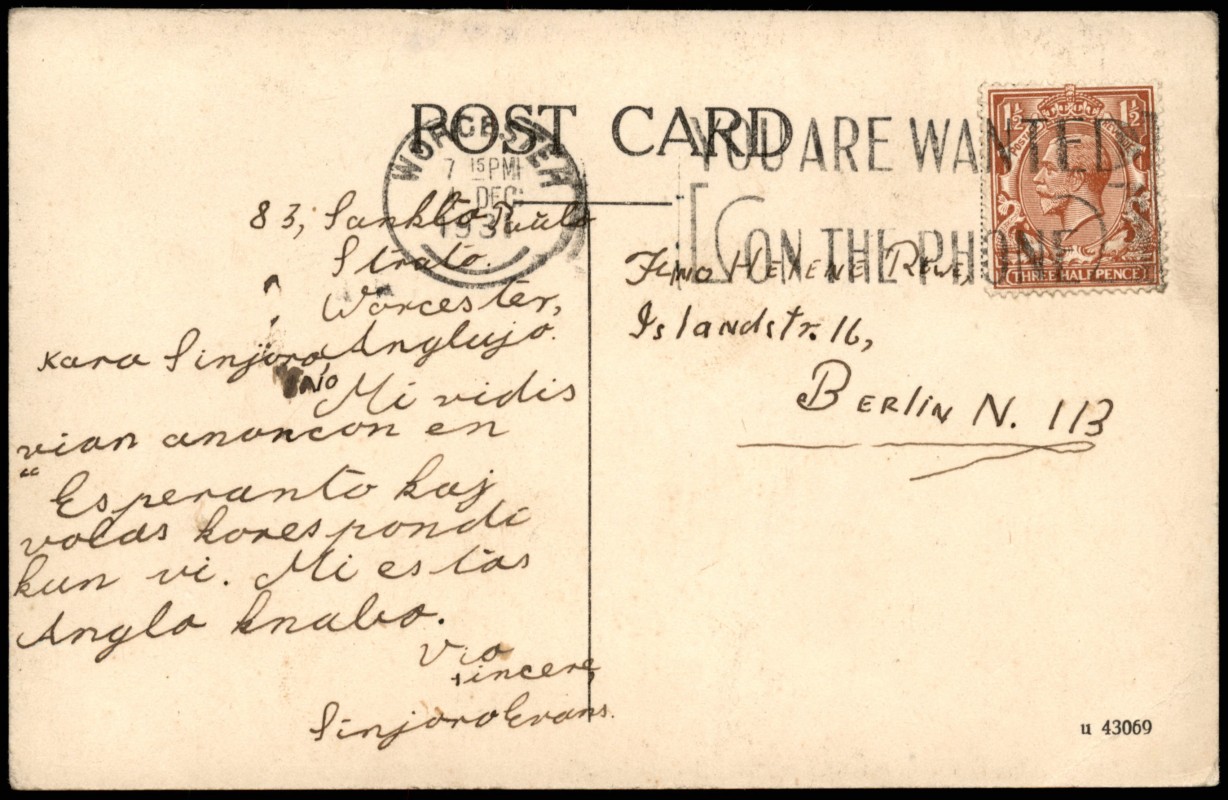 POST CARD
WORCESTER
7 15 PM
DEC
1931
YOU ARE WANTED
ON THE PHONE
1½ 1½
POSTAGE REVENUE
THREE HALFPENCE
83, Sankto Paŭlo
Strato.
Worcester,
Anglujo.
Kara Sinjoro,
Mi vidis
vian anoncon en
"Esperanto kaj
volas korespondi
kun vi. Mi estas
Anglo knabo.
Via
sincere,
Sinjoro Evans.
Fino Helene
Islandstr. 16,
Berlin N. 113
u 43069